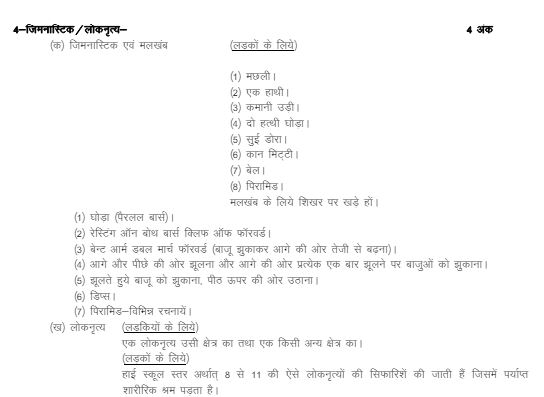 4–जिमनास्टिक / लोकनृत्य– 4 अंक
(क) जिमनास्टिक एवं मलखंब (लड़कों के लिये)
(1) मछली।
(2) एक हाथी।
(3) कमानी उड़ी।
(4) दो हत्थी घोडा।
(5) सुई डोरा।
(6) कान मिट्टी।
(7) बेल।
(8) पिरामिड।
मलखंब के लिये शिखर पर खडे हों।
(1) घोडा (पैरलल बार्स)।
(2) रेस्टिंग ऑन बोथ बार्स क्लिफ ऑफ फॉरवर्ड।
(3) बेन्ट आर्म डबल मार्च फॉरवर्ड (बाजू झुकाकर आगे की ओर तेजी से बढना)।
(4) आगे और पीछे की ओर झूलना और आगे की ओर प्रत्येक एक बार झूलने पर बाजुओं को झुकाना।
(5) झूलते हुये बाजू को झुकाना, पीठ ऊपर की ओर उठाना।
(6) डिप्स।
(7) पिरामिड–विभिन्न रचनायें।
(ख) लोकनृत्य (लडकियों के लिये)
एक लोकनृत्य उसी क्षेत्र का तथा एक किसी अन्य क्षेत्र का।
(लडकों के लिये)
हाई स्कूल स्तर अर्थात् 8 से 11 की ऐसे लोकनृत्यों की सिफारिशें की जाती हैं जिसमें पर्याप्त
शारीरिक श्रम पड़ता है।